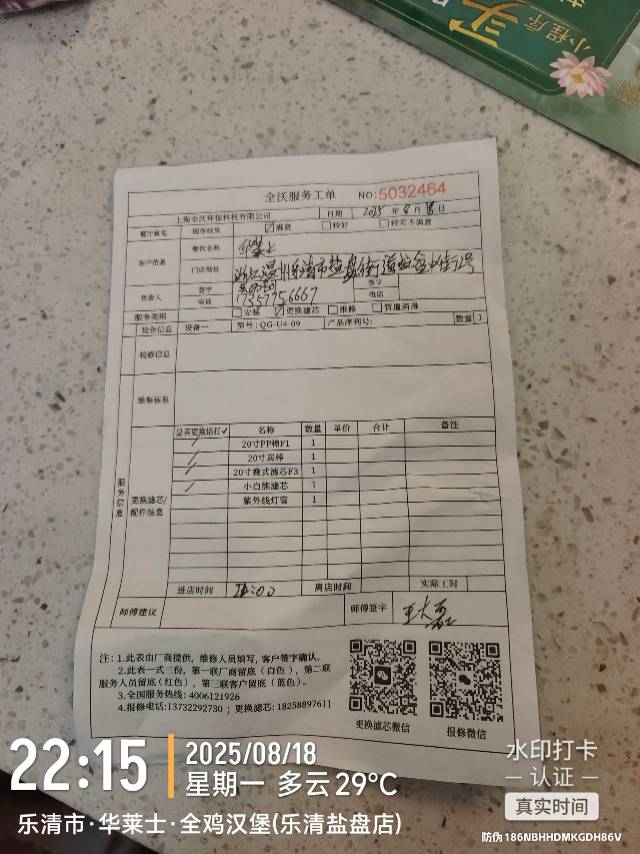 小程序
全沃服务工单 NO:5032464
上海全沃环保科技有限公司 日期 2025年8月18日
餐厅意见 服务结果 ☑满意 □较好 □较不满意
客户信息 餐饮名称 华莱士
门店地址 浙江温州乐清市盐盘街道
负责人 签字 签字
电话 17357756667 电话
服务类别 □安装 ☑更换滤芯 □维修 □管道清理
设备信息 设备一 型号:QG-U4-09 产品序列号: 数量1
检修信息
维修信息
服务信息
更换滤芯/配件信息
是否更换请打✓ 名称 数量 单价 合计 备注
✓ 20寸PP棉F1 1
✓ 20寸炭棒 1
✓ 20寸叠式滤芯F3 1
✓ 小白熊滤芯 1
紫外线灯管 1
进店时间 离店时间 实际工时
师傅建议 师傅签字 王大磊
注: 1.此表由厂商提供，维修人员填写，客户签字确认。
2.此表一式三份，第一联厂商留底（白色），第二联
服务人员留底（红色），第三联客户留底（蓝色）。
3.全国服务热线: 4006121926
4.报修电话:13732292730 ; 更换滤芯: 18258897611
更换滤芯微信 报修微信
22:15
2025/08/18
星期一 多云 29°C
乐清市·华莱士·全鸡汉堡(乐清盐盘店)
水印打卡
认证
真实时间
防伪 186NBHHDMKGDH86V